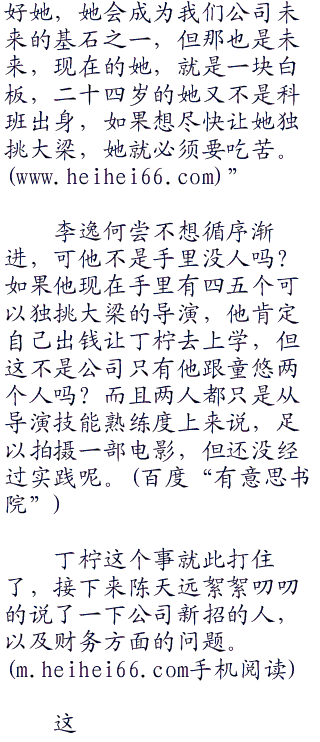 好她，她会成为我们公司未
来的基石之一，但那也是未
来，现在的她，就是一块白
板，二十四岁的她又不是科
班出身，如果想尽快让她独
挑大梁，她就必须要吃苦。
(www.heihei66.com)”
李逸何尝不想循序渐
进，可他不是手里没人吗？
如果他现在手里有四五个可
以独挑大梁的导演，他肯定
自己出钱让丁柠去上学，但
这不是公司只有他跟童悠两
个人吗？而且两人都只是从
导演技能熟练度上来说，足
以拍摄一部电影，但还没经
过实践呢。(百度“有意思书
院”)
丁柠这个事就此打住
了，接下来陈天远絮絮叨叨
的说了一下公司新招的人，
以及财务方面的问题。
(m.heihei66.com手机阅读)
这